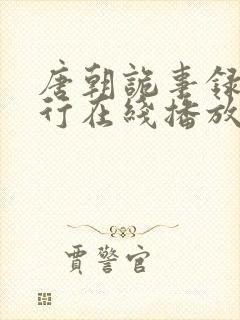 唐朝詭事録
行在綫播放
賈警官